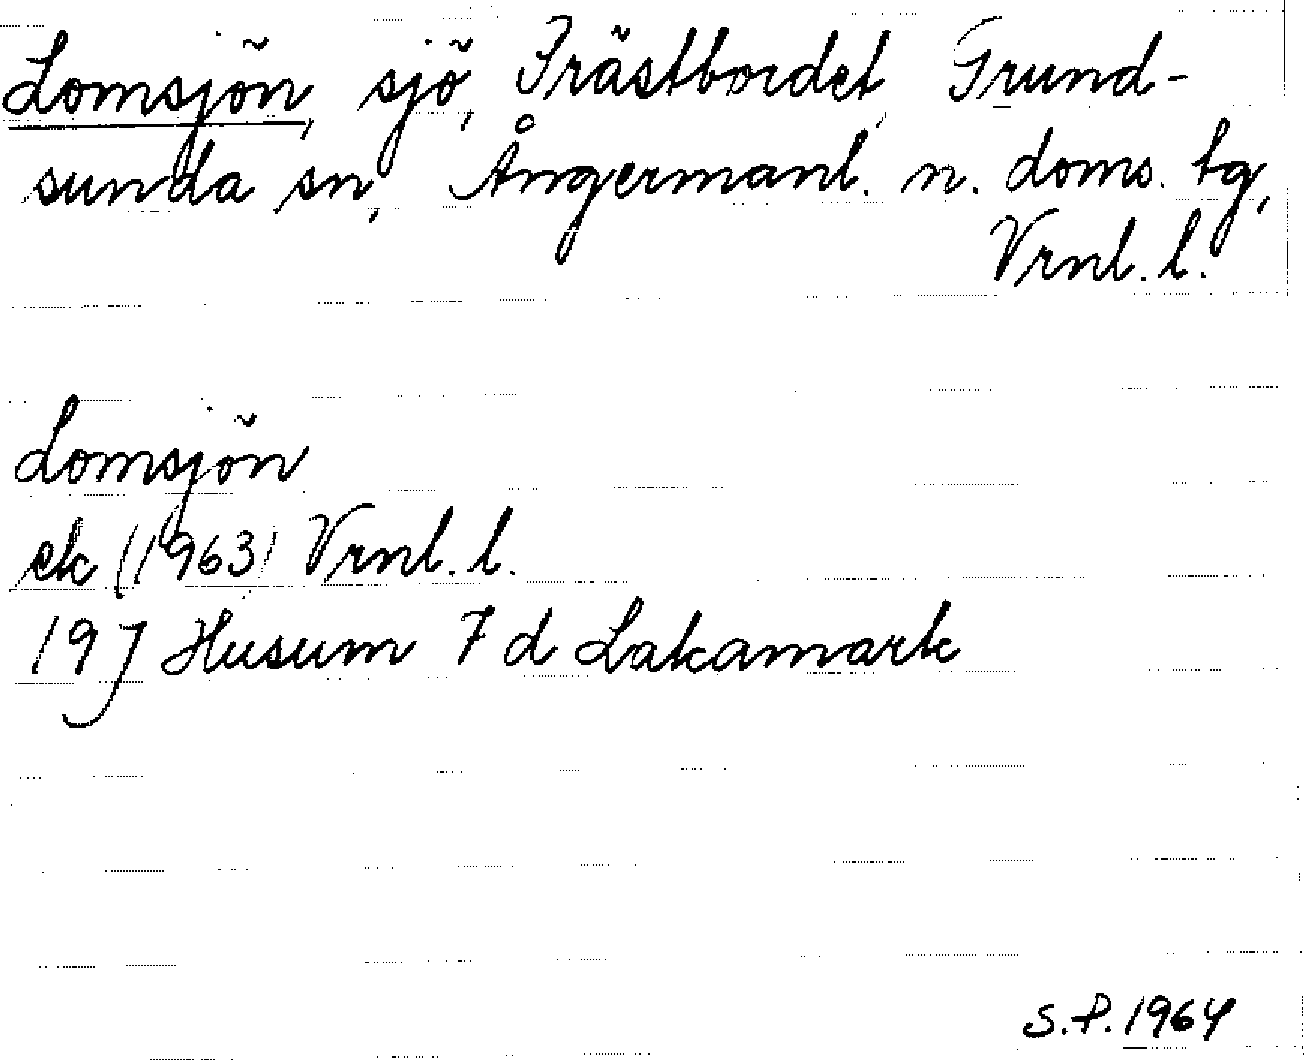 Lomsjön, sjö, Prästbordet, Grund-
sunda sn, Ångermanl. n. doms. tg,
Vrnl. l.
Lomsjön
ek (1963) Vrnl. l.
19 J Husum 7 d Lakamark
S.P. 1964